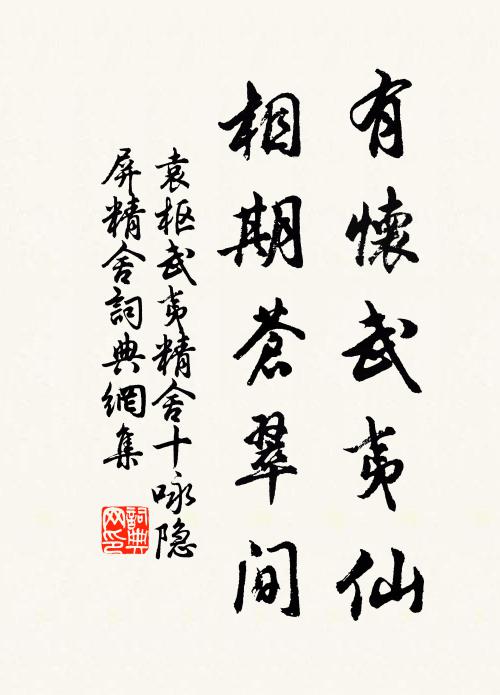 有懷武夷仙
相期蒼翠間
袁枢武夷精舍十咏隐
屏精舍詞典網集
詞典网印